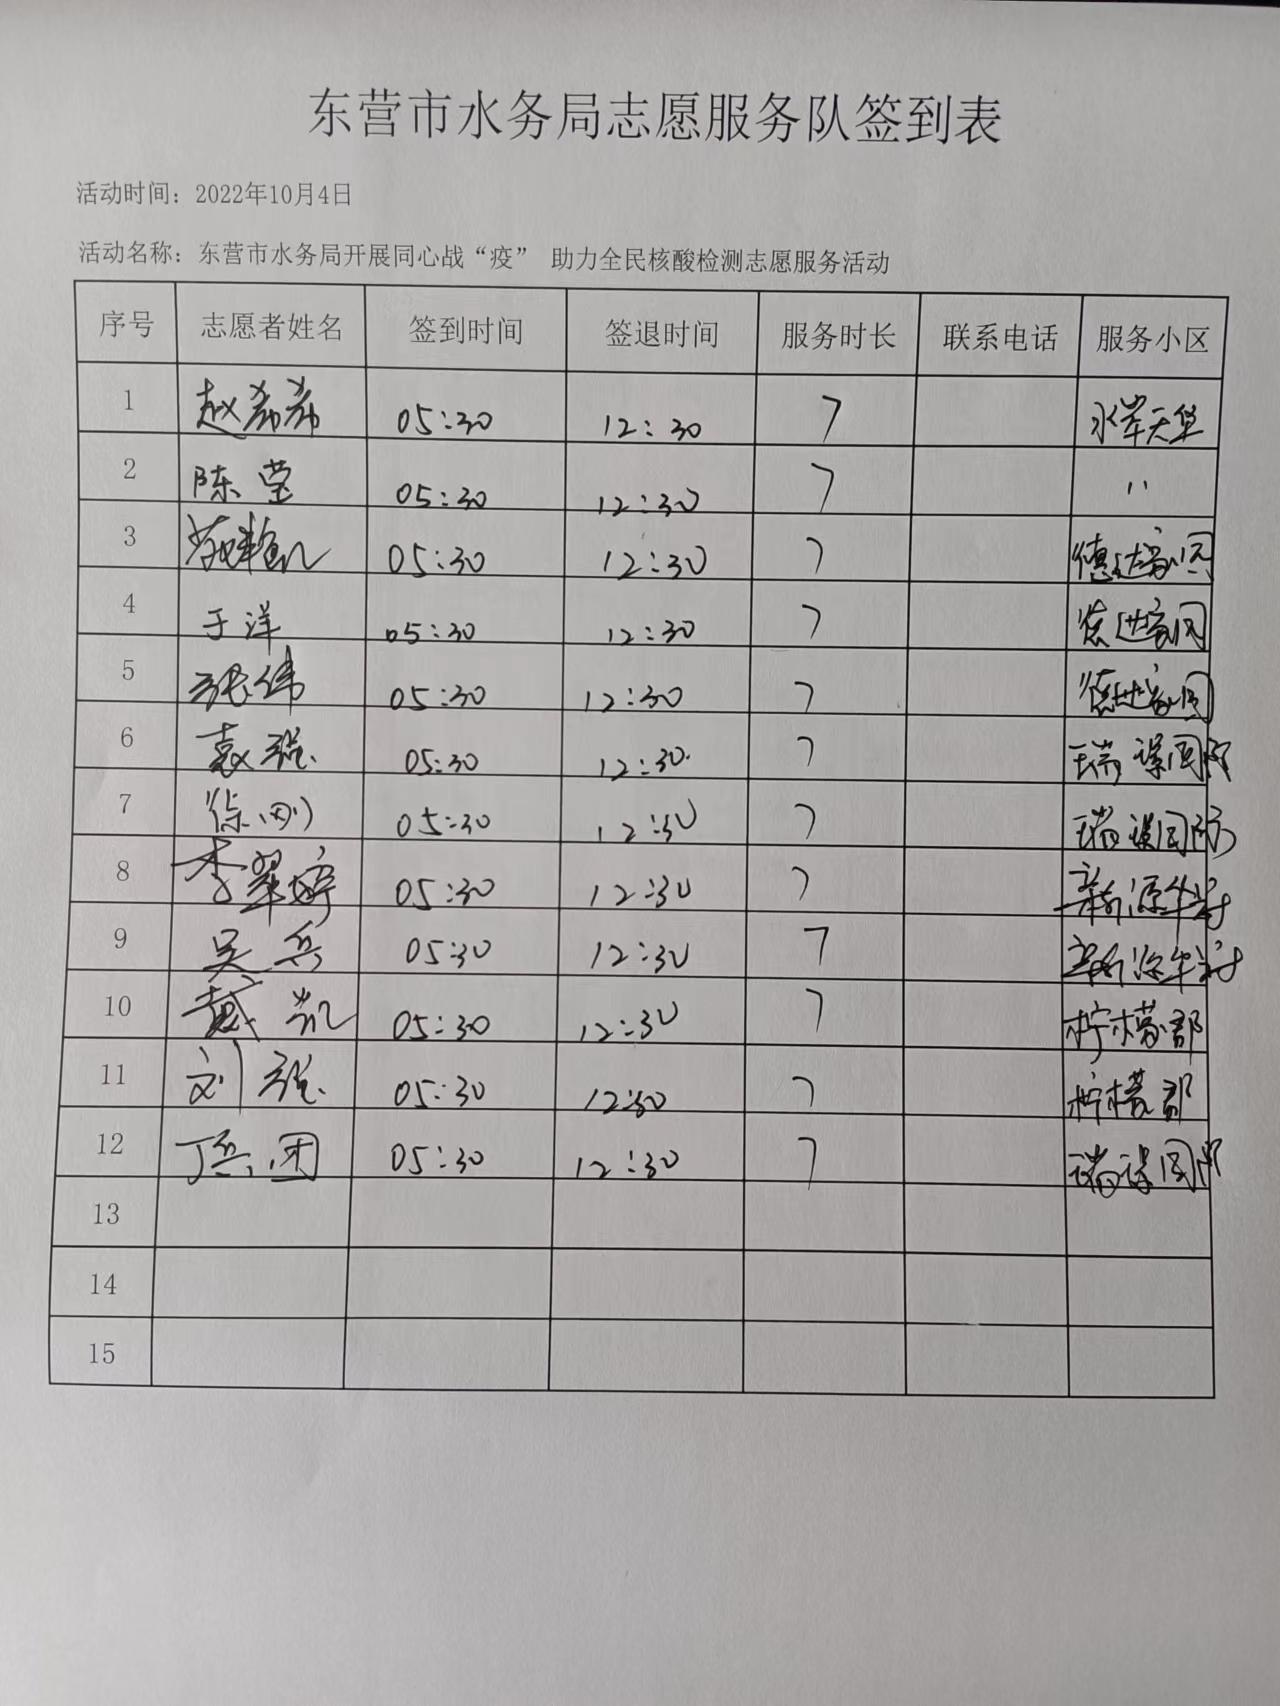 东营市水务局志愿服务队签到表
活动时间：2022年10月4日
活动名称：东营市水务局开展同心战“疫” 助力全民核酸检测志愿服务活动
序号 志愿者姓名 签到时间 签退时间 服务时长 联系电话 服务小区
1 赵希希 05:30 12:30 7 水岸天华
2 陈莹 05:30 12:30 7 〃
3 05:30 12:30 7 德达家园
4 于洋 05:30 12:30 7 德达家园
5 张伟 05:30 12:30 7 德达家园
6 袁强 05:30 12:30 7 瑞璟国际
7 徐刚 05:30 12:30 7 瑞璟国际
8 李翠婷 05:30 12:30 7 新源华府
9 吴兵 05:30 12:30 7 新源华府
10 戴凯 05:30 12:30 7 柠檬郡
11 刘强 05:30 12:30 7 柠檬郡
12 丁兵团 05:30 12:30 7 瑞璟国际
13
14
15